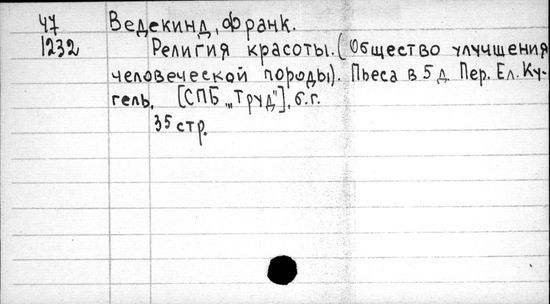 47 Ведекинд, Франк.
1232 Религия красоты. (Общество улучшения
человеческой породы). Пьеса в 5 д. Пер. Ел. Ку-
гель. [СПБ „Труд"], б.г.
35 стр.